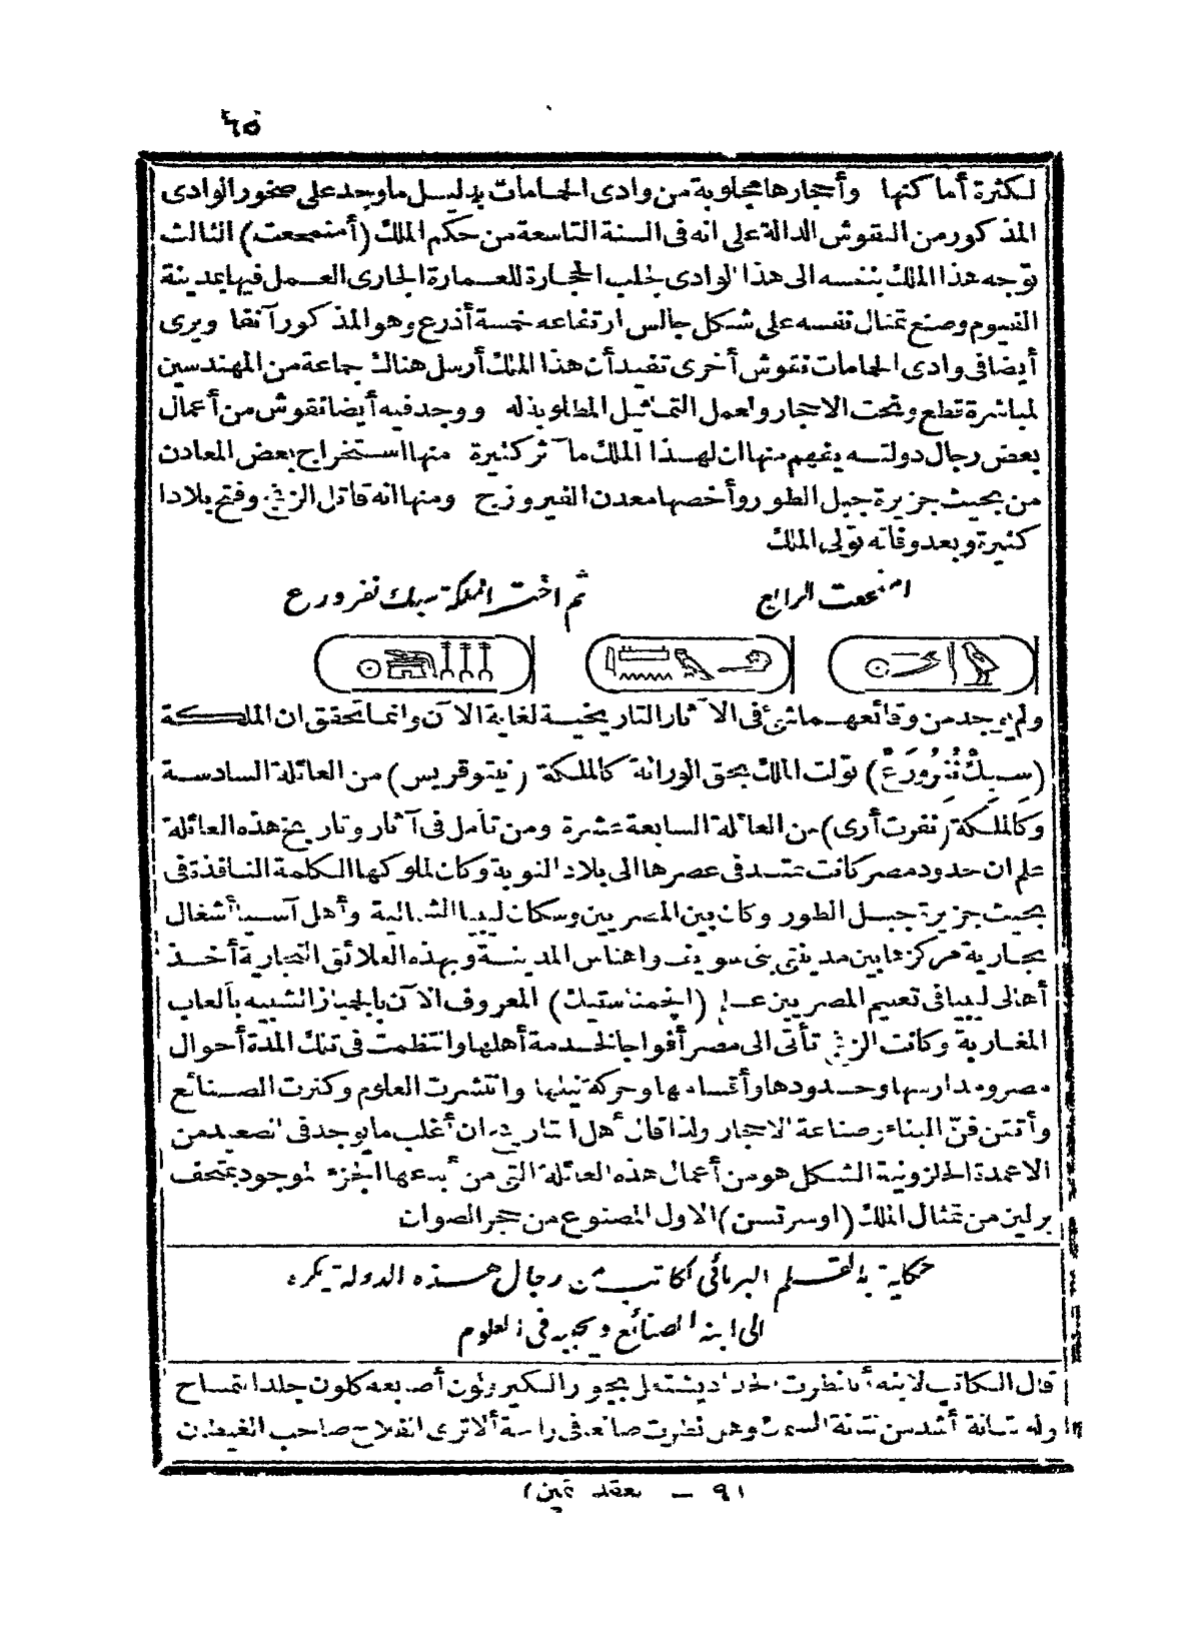 ٦٥
لكثرة أماكنها وأحجارها مجلوبة من وادى الحمامات بدليل ماوجد على صخور الوادى
المذكور من النقوش الدالة على انه فى السنة التاسعة من حكم الملك (أمنمحعت) الثالث
توجه هذا الملك بنفسه الى هذا الوادى لجلب الحجارة للعمارة الجارى العمل فيها بمدينة
الفيوم وصنع تمثال نفسه على شكل جالس ارتفاعه خمسة أذرع وهو المذكور آنفا ويرى
أيضا فى وادى الحمامات نقوش أخرى تفيد أن هذا الملك أرسل هناك جماعة من المهندسين
لمباشرة قطع ونحت الاحجار ولعمل التماثيل المطلوبة له ووجد فيه أيضا نقوش من أعمال
بعض رجال دولته يفهم منها ان لهذا الملك مآثر كثيرة منها استخراج بعض المعادن
من بحيث جزيرة جبل الطور وأخصها معدن الفيروزج ومنها انه قاتل الزنج وفتح بلادا
كثيرة وبعد وفاته تولى الملك
امنمحعت الرابع ثم اخته الملكة سبك نفرورع
ولم يوجد من وقائعهما شئ فى الآثار التاريخية لغاية الآن وانما تحقق ان الملكة
(سبك نفرورع) تولت الملك بحق الوراثة كالملكة (نيتوقريس) من العائلة السادسة
وكالملكة (نفرت أرى) من العائلة السابعة عشرة ومن تأمل فى آثار وتاريخ هذه العائلة
علم ان حدود مصر كانت تمتد فى عصرها الى بلاد النوبة وكان لملوكها الكلمة النافذة فى
بحيث جزيرة جبل الطور وكان بين المصريين وسكان ليبيا الشمالية وأهل آسيا أشغال
تجارية مركزها بين مدينتى بنى سويف واهناس المدينة وبهذه العلائق التجارية أخذ
أهالى ليبيا فى تعليم المصريين علم (الجمناستيك) المعروف الآن بالجمباز الشبيه بألعاب
المغاربة وكانت الزنج تأتى الى مصر أفواجا لخدمة أهلها وانتظمت فى تلك المدة أحوال
مصر ومدارسها وحدودها وأقسامها وحركة نيلها وانتشرت العلوم وكثرت الصنائع
وأتقن فنّ البناء وصناعة الاحجار ولذا قال أهل التاريخ ان أغلب ما يوجد فى الصعيد من
الاعمدة الحلزونية الشكل هو من أعمال هذه العائلة التى من أبدعها الجزء الموجود بمتحف
برلين من تمثال الملك (اوسرتسن) الاول المصنوع من حجر الصوان
حكاية بالقلم البربائى لكاتب من رجال هذه الدولة يكره
الى ابنه الصنائع ويحببه فى العلوم
قال الكاتب لابنه أنا نظرت الحداد يشتغل بجوار الكير ولون أصابعه كلون جلد التمساح
وله نتانة أشد من نتنة السمك وهل نظرت صانعا فى راحة ألا ترى الفلاح صاحب الغيطان
(٩ - عقد ثمين)